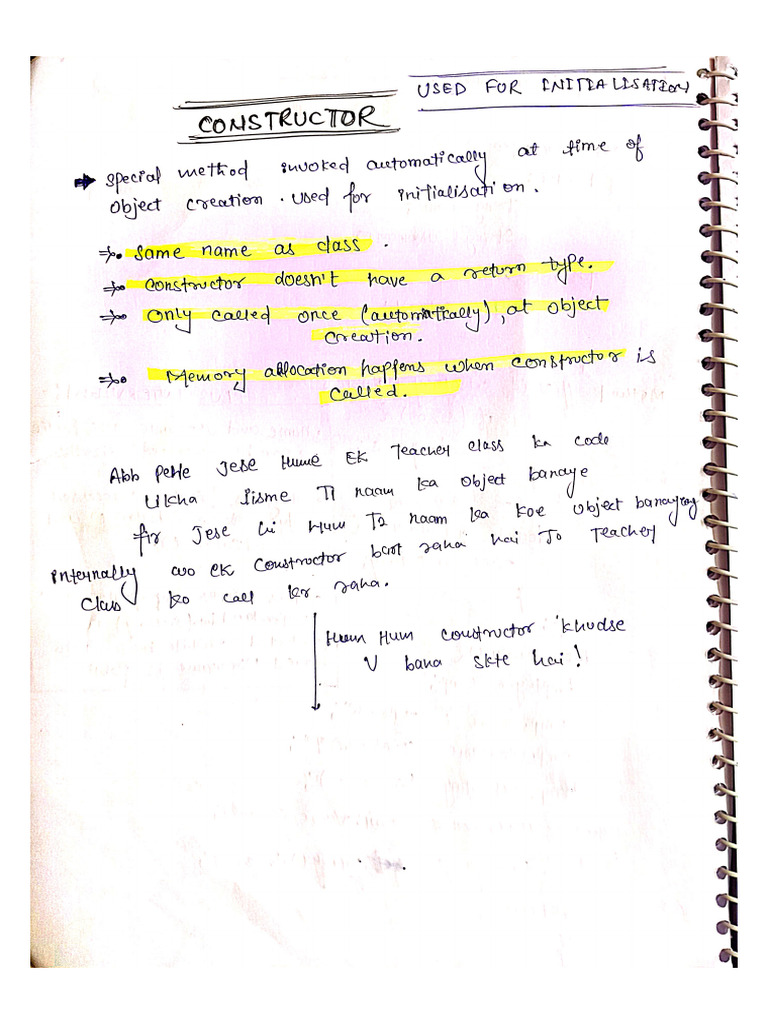 USED FOR INITIALISATION
CONSTRUCTOR
special method invoked automatically at time of
object creation. used for initialisation.
⇒• Same name as class.
⇒• Constructor doesn't have a return type.
⇒• Only called once (automatically), at object
creation.
⇒• Memory allocation happens when constructor is
called.
Abb Pehle Jese Hume EK Teacher class ka code
likha Jisme T1 naam ka object banaye
fir Jese hi Hum T2 naam ka koe object banayeng
internally wo ek constructor bana raha hai Jo Teacher
class ko call kr raha.
Hum Hum constructor khudse
V bana skte hai!